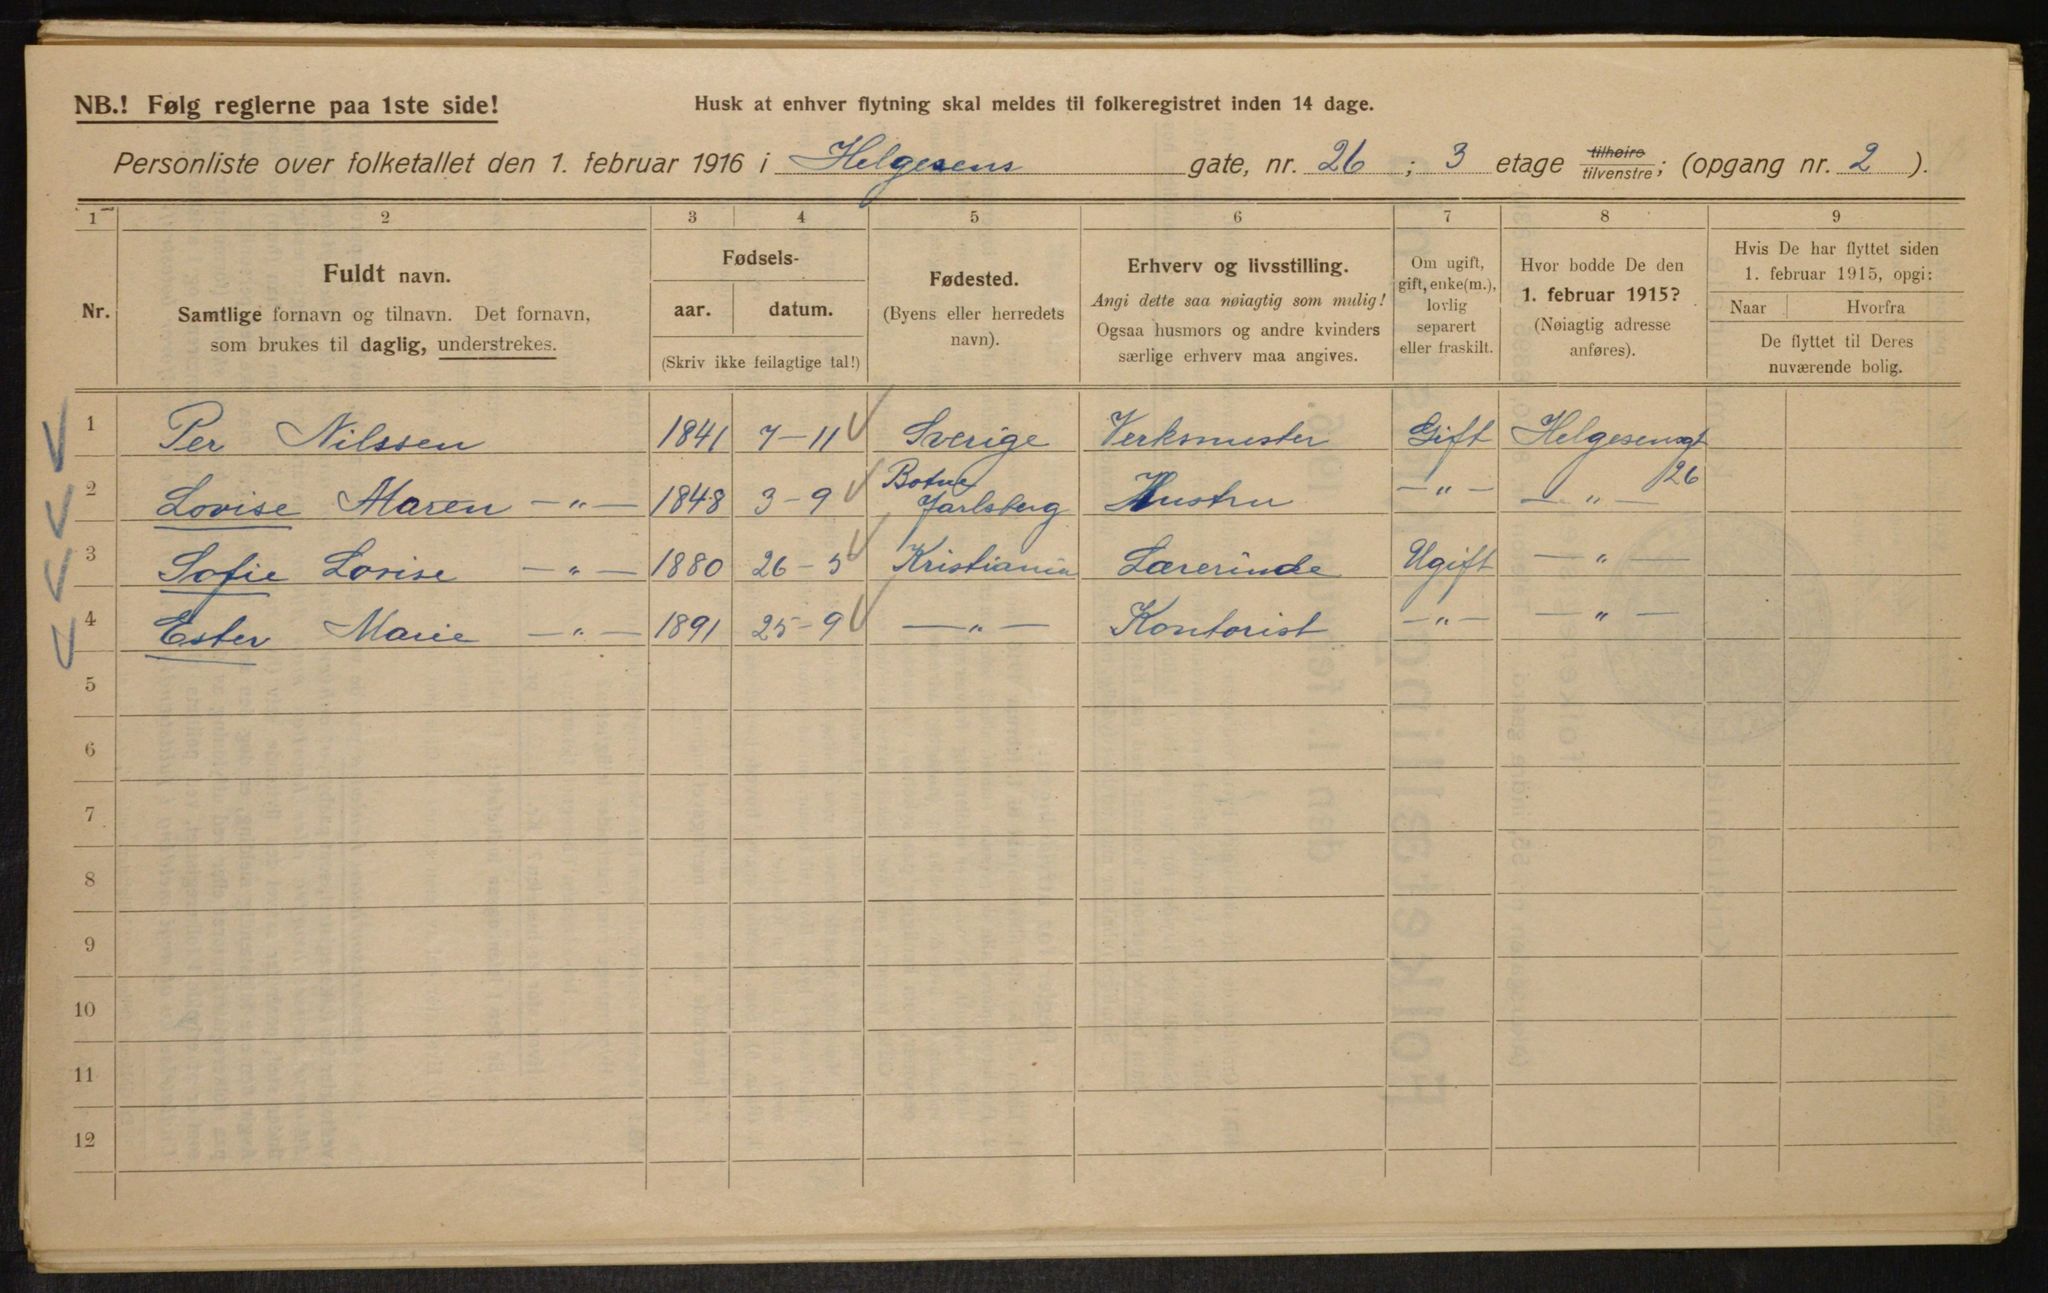 NB.! Følg reglerne paa 1ste side!
Husk at enhver flytning skal meldes til folkeregistret inden 14 dage.
Personliste over folketallet den 1. februar 1916 i Helgesens gate, nr. 26 ; 3 etage tilhøire tilvenstre; (opgang nr. 2 ).
1 2 3 4 5 6 7 8 9
Nr.
Fuldt navn.
Samtlige fornavn og tilnavn. Det fornavn,
som brukes til daglig, understrekes.
Fødsels-
aar. datum.
(Skriv ikke feilagtige tal!)
Fødested.
(Byens eller herredets
navn).
Erhverv og livsstilling.
Angi dette saa nøiagtig som mulig!
Ogsaa husmors og andre kvinders
særlige erhverv maa angives.
Om ugift,
gift, enke(m.),
lovlig
separert
eller fraskilt.
Hvor bodde De den
1. februar 1915?
(Nøiagtig adresse
anføres).
Hvis De har flyttet siden
1. februar 1915, opgi:
Naar Hvorfra
De flyttet til Deres
nuværende bolig.
1 Per Nilssen 1841 7-11 Sverige Verksmester Gift Helgesensgt 26
2 Lovise Maren -„- 1848 3-9 Botne Jarlsberg Hustru -„- -„-
3 Sofie Lovise -„- 1880 26-5 Kristiania Lærerinde Ugift -„-
4 Ester Marie -„- 1891 25-9 -„- Kontorist -„- -„-
5
6
7
8
9
10
11
12